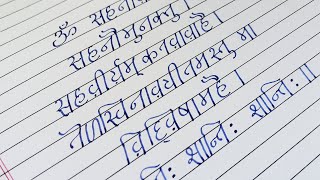 ॐ सहना
सहनौमुनक्तु।
सहवीर्यम् करवावहै।
तेजस्विनावधीतमस्तु मा
विद्विषामहै।
न्तिः शान्तिः शान्तिः॥